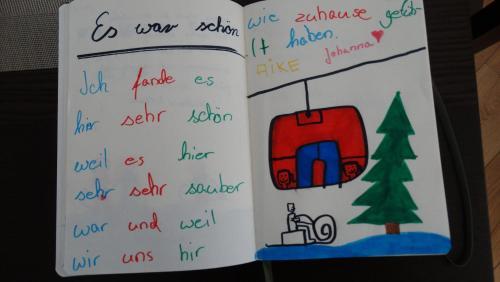 Es war schön
Ich fande es
hir sehr schön
weil es hier
sehr sehr sauber
war und weil
wir uns hir
wie zuhause gefüh-
lt haben.
Johanna
AIKE